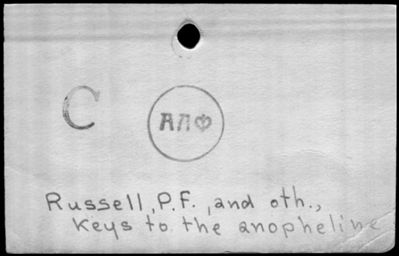 C
АПФ
Russell, P.F., and oth.,
Keys to the anopheline